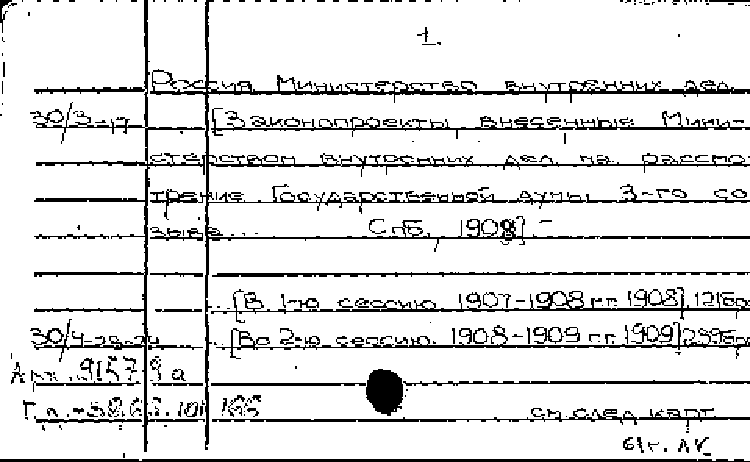 1.
Россия Министерство внутренних дел.
30/3-17 [Законопроекты, внесенные Мини-
стерством внутренних дел на рассмо
трение Государственной думы 3-го со
зыва. СПб. 1908].-
[В 1-ю сессию 1907-1908 гг. 1908]. 121бр
30/4- [Во 2-ю сессию. 1908-1909 гг. 1909] 239бр
9157
166
См. след. карт.